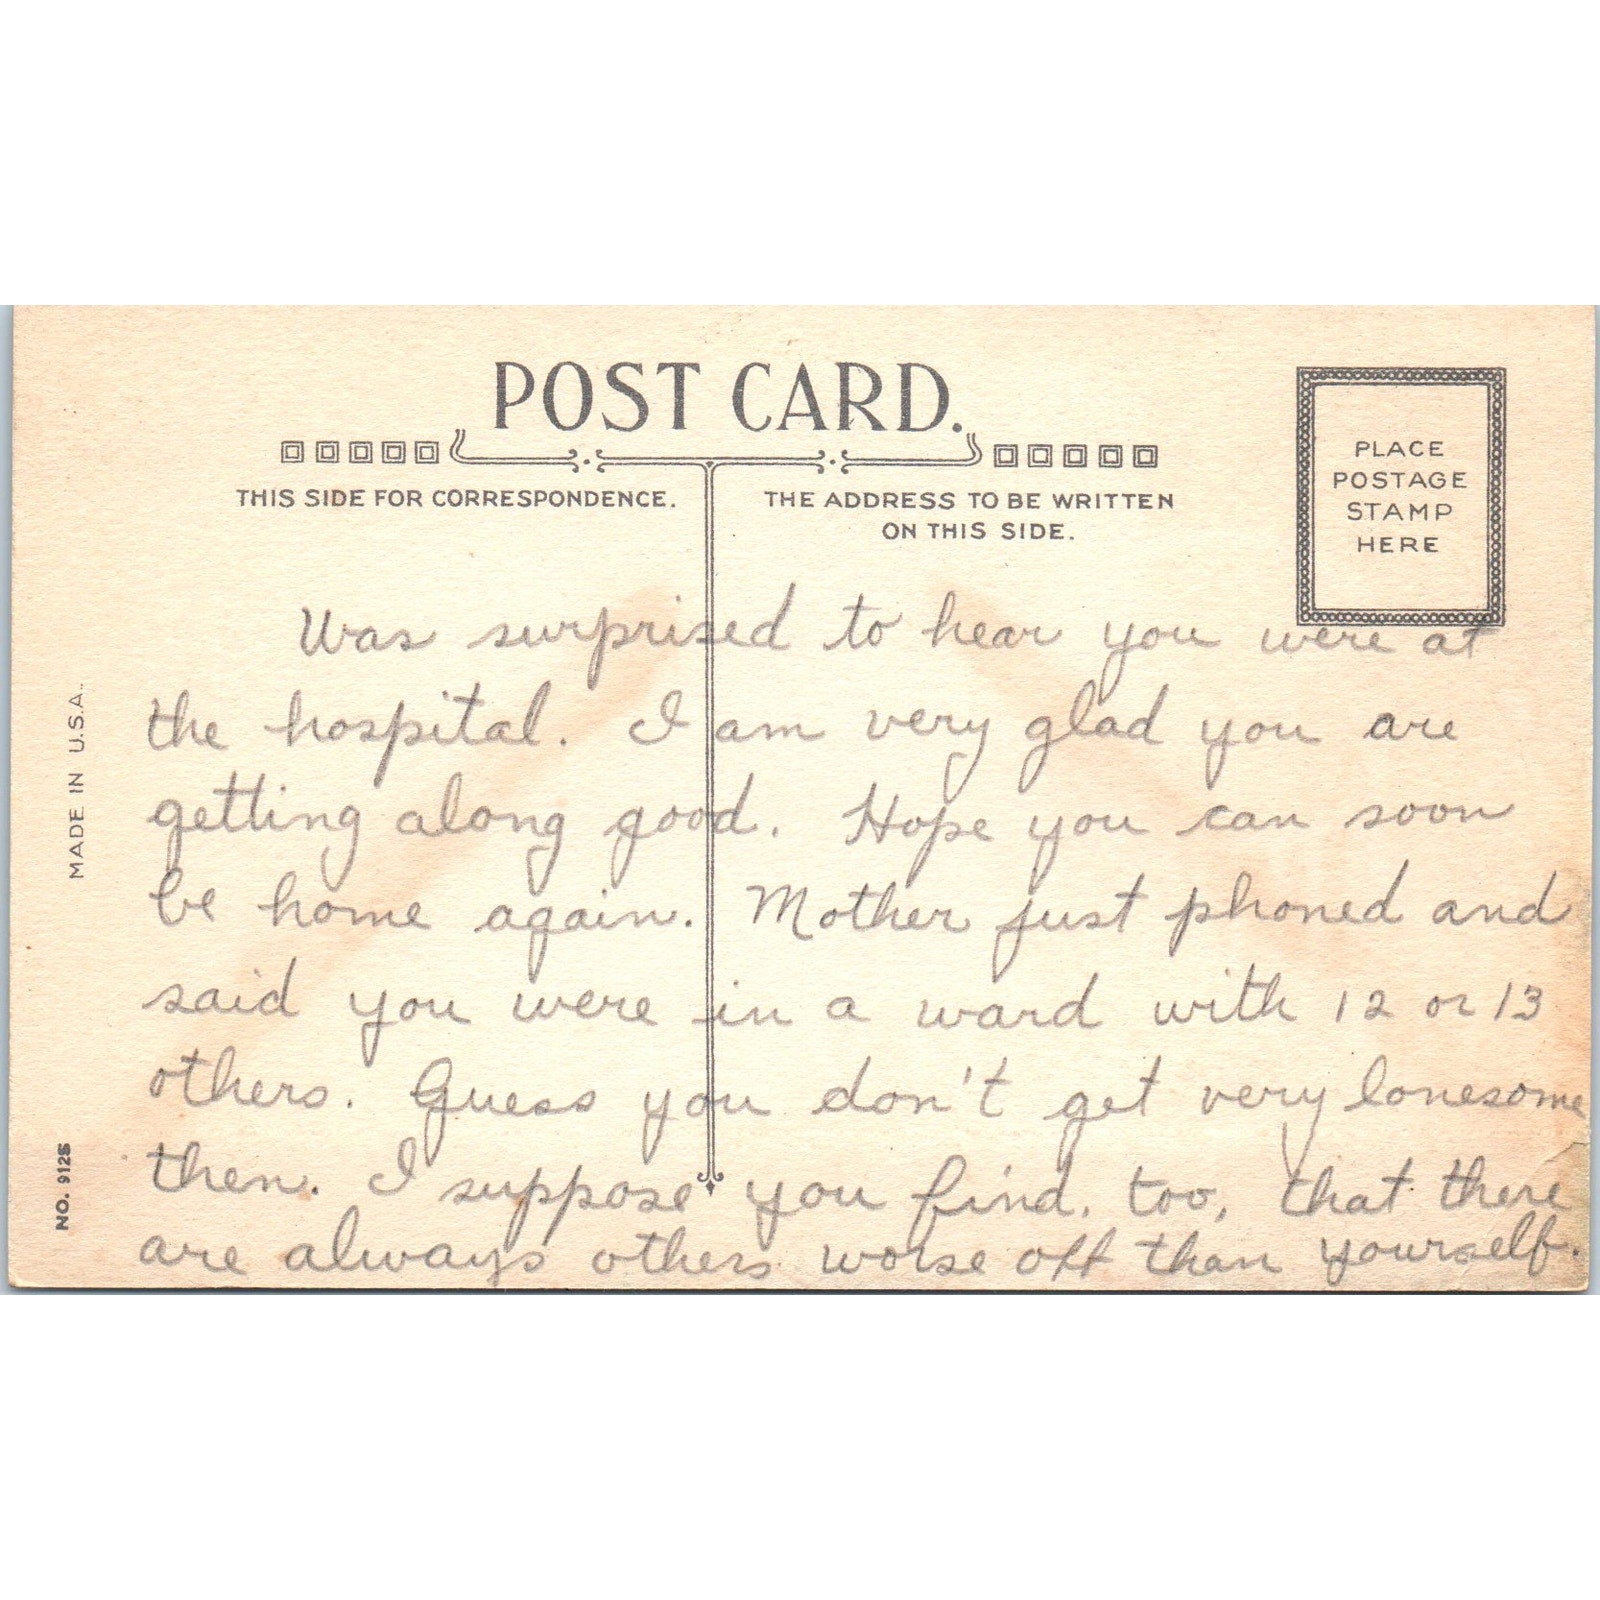 POST CARD.
THIS SIDE FOR CORRESPONDENCE.
THE ADDRESS TO BE WRITTEN
ON THIS SIDE.
PLACE
POSTAGE
STAMP
HERE
Was surprised to hear you were at
the hospital. I am very glad you are
getting along good. Hope you can soon
be home again. Mother just phoned and
said you were in a ward with 12 or 13
others. Guess you don't get very lonesome
then. I suppose you find, too, that there
are always others worse off than yourself.
MADE IN U.S.A.
NO. 9125